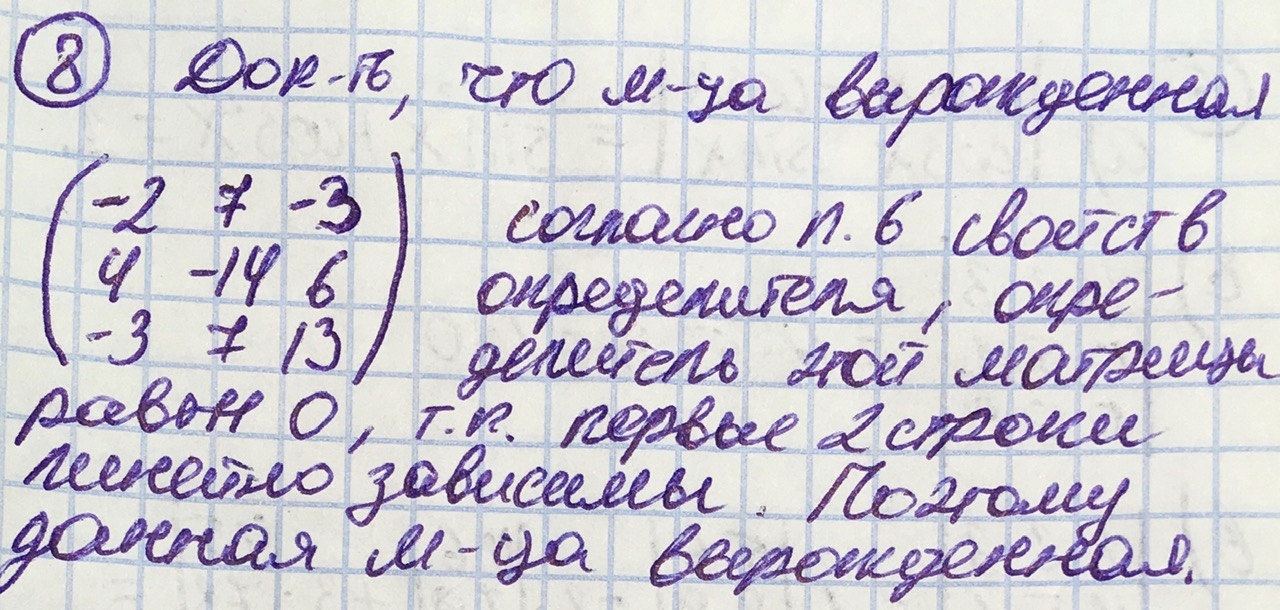 8 Док-ть, что м-ца вырожденная
-2 7 -3 согласно п. 6 свойств
4 -14 6 определителя, опре-
-3 7 13 делитель этой матрицы
равен 0, т.к. первые 2 строки
линейно зависимы. Поэтому
данная м-ца вырожденная.